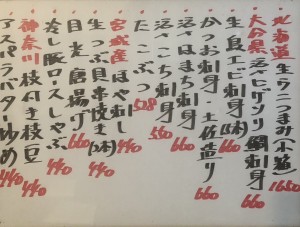 北海道 生ウニつまみ(小箱) 1650
大分県 活きヒゲソリ鯛刺身 660
生鳥エビ刺身(5本) 660
かつお刺身 土佐造り 660
活きはまち刺身 660
活きこち刺身 550
たこぶつ 528
宮城産 ほや刺し 440
生つぶ貝串焼き(3本) 440
目光唐揚げ 660
冷し豚ロースしゃぶ 440
神奈川 枝付き枝豆 440
アスパラバター炒め 440